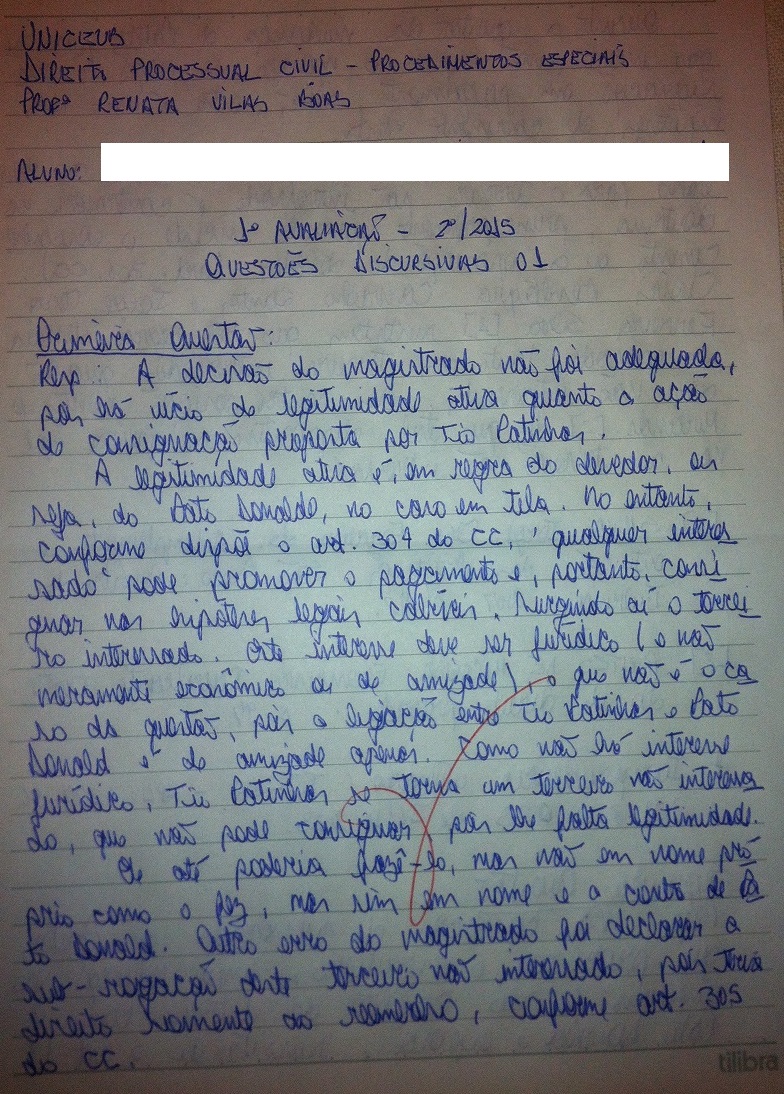 UNICEUB
DIREITO PROCESSUAL CIVIL - PROCEDIMENTOS ESPECIAIS
PROFª RENATA VILAS BOAS
ALUNO:
1ª AVALIAÇÃO - 2º/2015
QUESTÕES DISCURSIVAS 01
Primeira Questão:
Resp. A decisão do magistrado não foi adequada,
pois há vício de legitimidade ativa quanto a ação
de consignação proposta por Tio Patinhas.
A legitimidade ativa é, em regra do devedor, ou
seja, do Pato Donalde, no caso em tela. No entanto,
conforme dispõe o art. 304 do CC, "qualquer interes
sado" pode promover o pagamento e, portanto, consi
gnar nas hipóteses legais cabíveis. Surgindo aí o tercei
ro interessado. Este interesse deve ser jurídico (e não
meramente econômico ou de amizade), o que não é o ca
so da questão, pois a ligação entre Tio Patinhas e Pato
Donald é de amizade apenas. Como não há interesse
jurídico, Tio Patinhas se torna um terceiro não interessa
do, que não pode consignar, pois lhe falta legitimidade.
Ele até poderia fazê-lo, mas não em nome pró
prio como o fez, mas sim em nome e a conta de Pa
to Donald. Outro erro do magistrado foi declarar a
sub-rogação deste terceiro não interessado, pois teria
direito somente ao reembolso, conforme art. 305
do CC.
tilibra